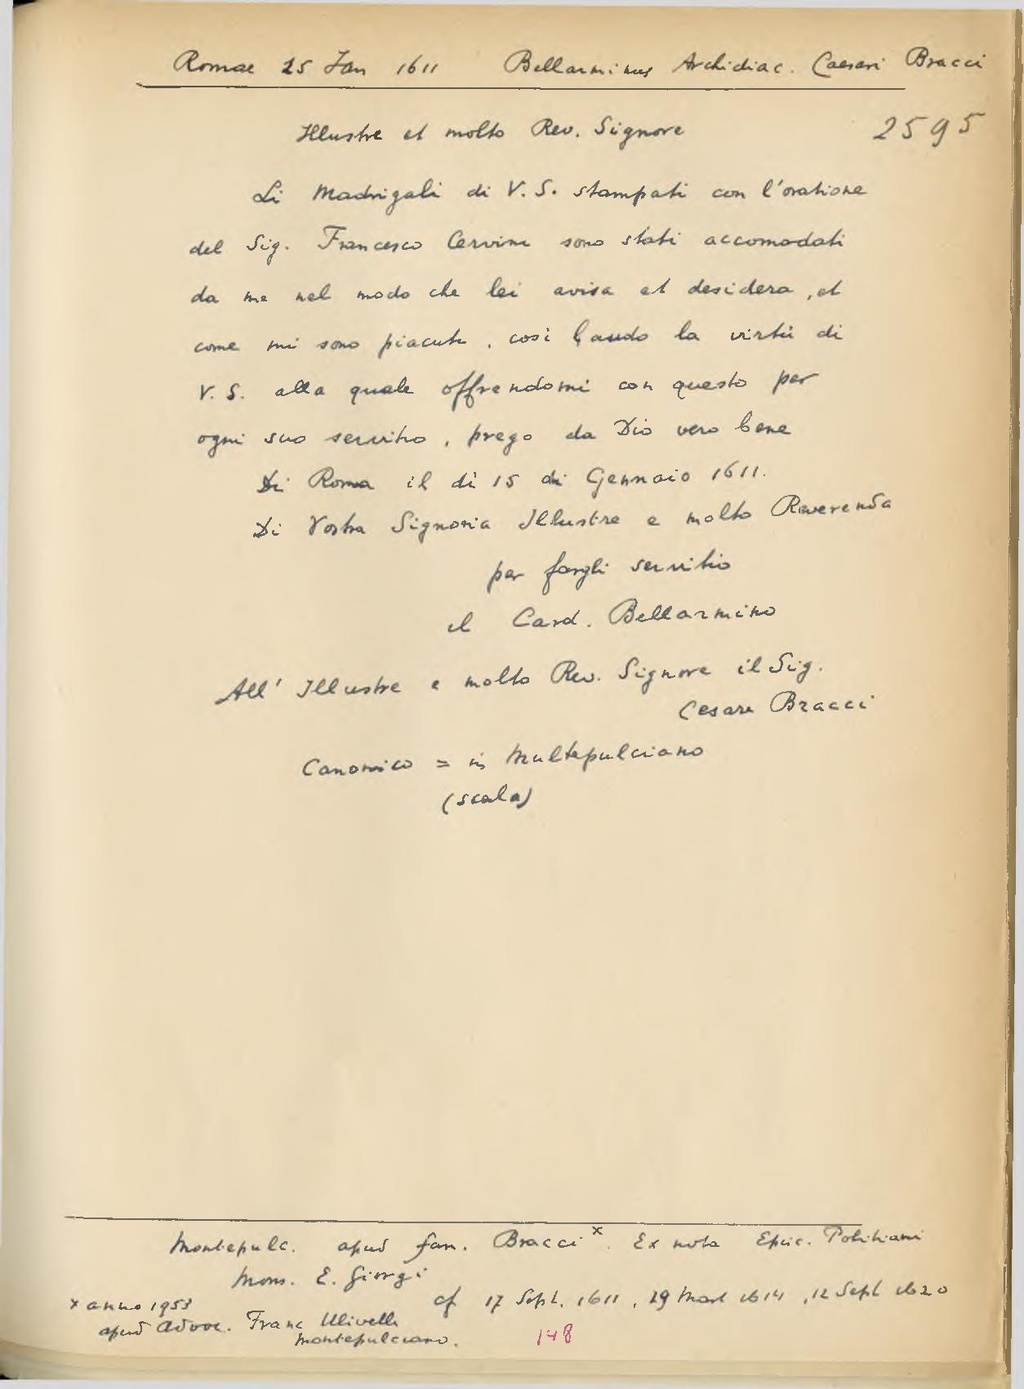 Romae 15 Jan 1611 Bellarminus Archidiac. Caesari Bracci
2595
Illustre et molto Rev. Signore
Li Madrigali di V. S. stampati con l'oratione
del Sig. Francesco Cervini sono stati accomodati
da me nel modo che lei avisa et desidera, et
come mi sono piaciute, così laudo la virtù di
V. S. alla quale offrendomi con questo per
ogni suo servitio, prego da Dio vero bene
Di Roma il dì 15 di Gennaio 1611.
Di Vostra Signoria Illustre e molto Reverenda
per fargli servitio
il Card. Bellarmino
All' Illustre e molto Rev. Signore il Sig.
Cesare Bracci
Canonico = in Multepulciano
(scala)
Montepulc. apud fam. Bracci x. Ex nota Epic. Politiani
Mons. E. Giorgi
cf 17 Sept. 1611, 29 Mart 1614, 12 Sept 1620
x anno 1953
apud Advoc. Franc Ulivelli
Montepulciano.
148